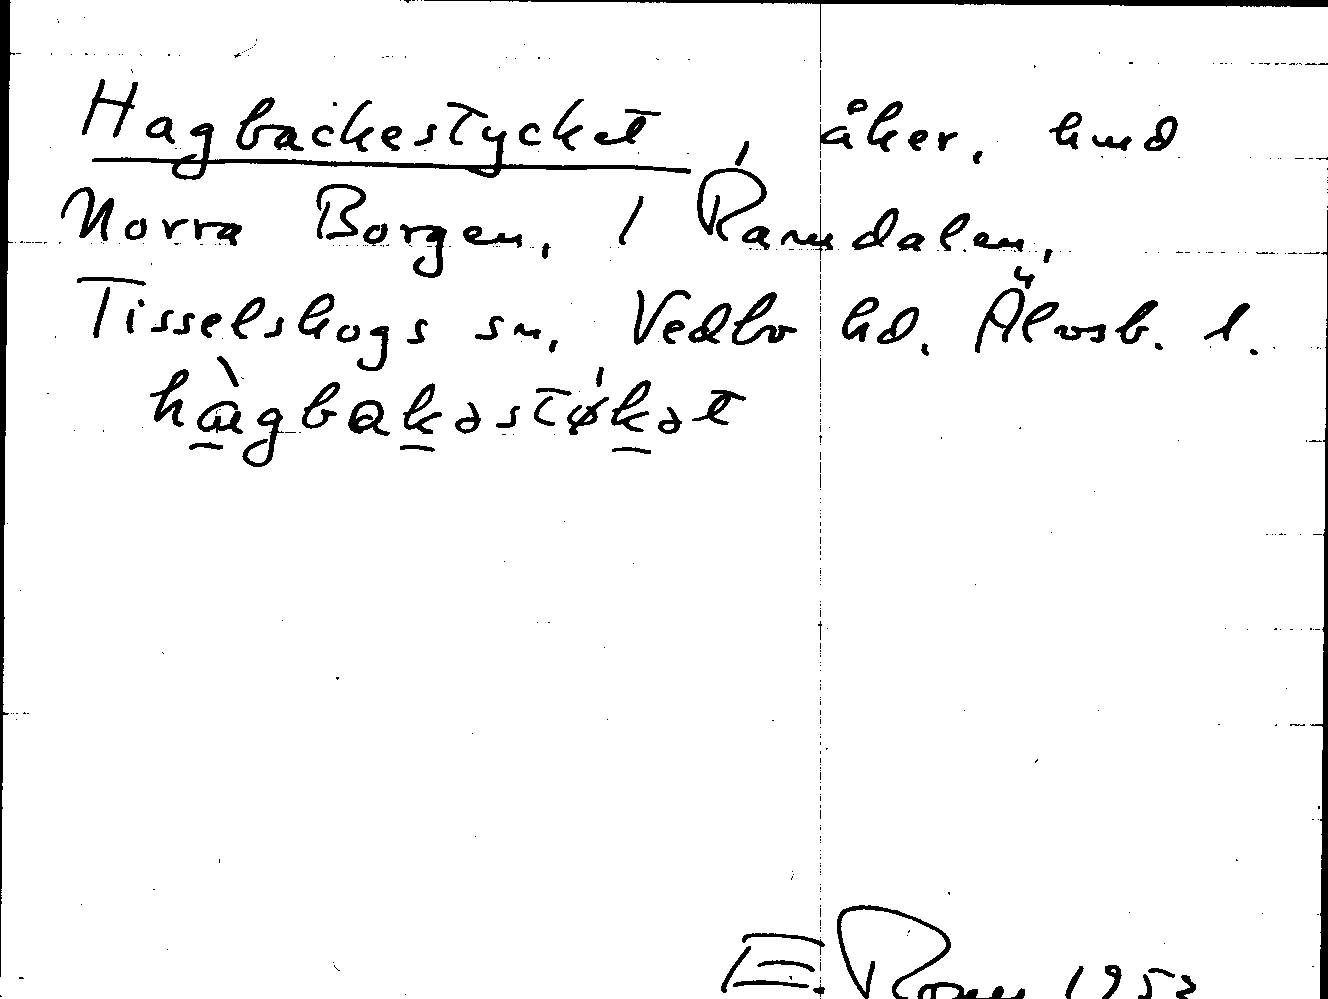 Hagbackestycket, åker, hmd
Norra Borgen, 1 Ramdalen,
Tisselskogs sn, Vedbo hd. Älvsb. l.
hàgbakəstø̍kət
E. Rosm 1953